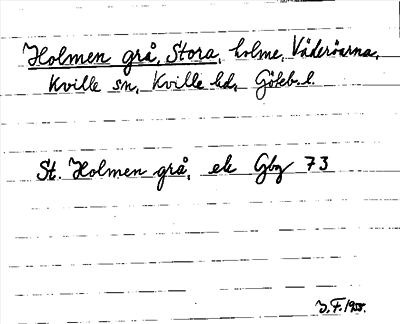 Holmen grå, Stora, holme, Väderöarna,
Kville sn, Kville hd, Göteb. l.
St. Holmen grå, ek Gbg 73
J.F. 1955.